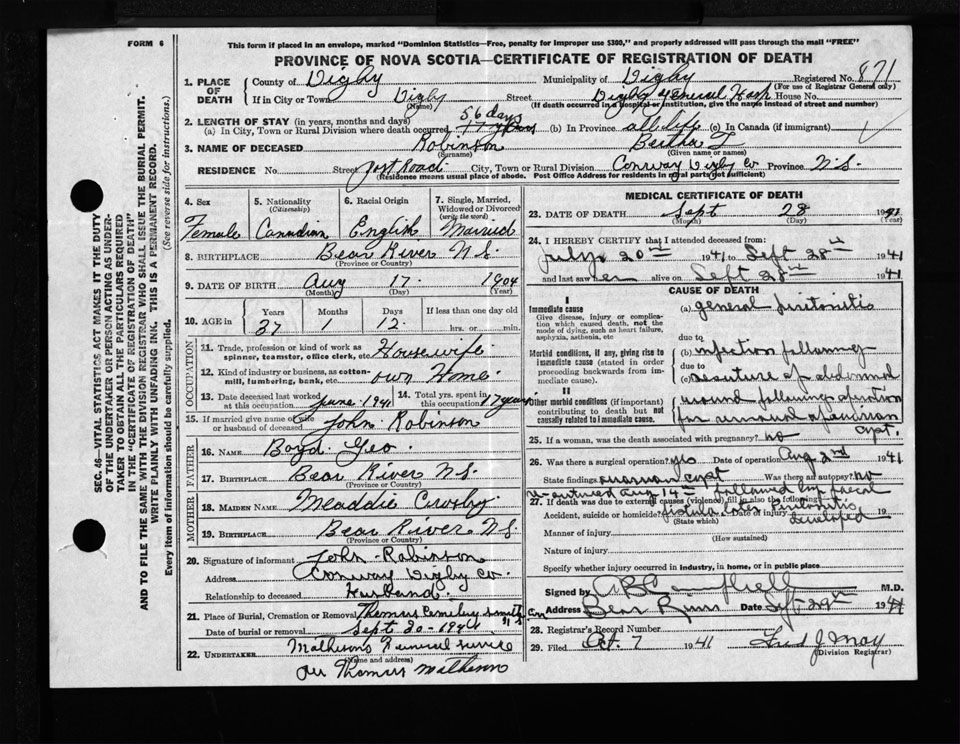 FORM 6
This form if placed in an envelope, marked "Dominion Statistics—Free, penalty for improper use $300," and properly addressed will pass through the mail "FREE"
PROVINCE OF NOVA SCOTIA—CERTIFICATE OF REGISTRATION OF DEATH
SEC. 46—VITAL STATISTICS ACT MAKES IT THE DUTY
OF THE UNDERTAKER OR PERSON ACTING AS UNDER-
TAKER TO OBTAIN ALL THE PARTICULARS REQUIRED
IN THE "CERTIFICATE OF REGISTRATION OF DEATH"
AND TO FILE THE SAME WITH THE DIVISION REGISTRAR WHO SHALL ISSUE THE BURIAL PERMIT.
WRITE PLAINLY WITH UNFADING INK. THIS IS A PERMANENT RECORD.
Every item of information should be carefully supplied. (See reverse side for instructions.)
1. PLACE OF DEATH County of Digby Municipality of Digby Registered No. 871
(For use of Registrar General only)
If in City or Town Digby Street Digby General Hosp House No.
(Name) (If death occurred in a hospital or institution, give the name instead of street and number)
2. LENGTH OF STAY (in years, months and days) 56 days
(a) In City, Town or Rural Division where death occurred 17 years (b) In Province all life (c) In Canada (if immigrant)
3. NAME OF DECEASED Robinson Bertha
(Surname) (Given name or names)
RESIDENCE No. Street Jost Road City, Town or Rural Division Conway Digby Co Province N.S.
(Residence means usual place of abode. Post Office Address for residents in rural parts not sufficient)
4. Sex 5. Nationality (Citizenship) 6. Racial Origin 7. Single, Married, Widowed or Divorced (write the word)
Female Canadian English Married
8. BIRTHPLACE Bear River N.S.
(Province or Country)
9. DATE OF BIRTH Aug 17 1904
(Month) (Day) (Year)
10. AGE in Years Months Days If less than one day old
37 1 12 hrs. or min.
OCCUPATION
11. Trade, profession or kind of work as spinner, teamster, office clerk, etc. Housewife
12. Kind of industry or business, as cotton-mill, lumbering, bank, etc. own Home
13. Date deceased last worked at this occupation June 1941 14. Total yrs. spent in this occupation 17 years
15. If married give name of wife or husband of deceased John Robinson
FATHER
16. NAME Boyd Geo
17. BIRTHPLACE Bear River N.S.
(Province or Country)
MOTHER
18. MAIDEN NAME Meaddie Crosby
19. BIRTHPLACE Bear River N.S.
(Province or Country)
20. Signature of informant John Robinson
Address Conway Digby Co.
Relationship to deceased Husband
21. Place of Burial, Cremation or Removal Thomas Cemetery N.S.
Date of burial or removal Sept 30 - 1941
22. UNDERTAKER Mathesons Funeral Service
(Name and address)
per Thomas Matheson
MEDICAL CERTIFICATE OF DEATH
23. DATE OF DEATH Sept 28 1941
(Month) (Day)
24. I HEREBY CERTIFY that I attended deceased from:
July 20th 1941 to Sept 28th 1941
and last saw her alive on Sept 28th 1941
CAUSE OF DEATH
I
Immediate cause
Give disease, injury or complication which caused death, not the mode of dying, such as heart failure, asphyxia, asthenia, etc
(a) general peritonitis
due to
Morbid conditions, if any, giving rise to immediate cause (stated in order proceeding backwards from immediate cause).
(b) infection following
due to
(c) resuture of abdominal
II
Other morbid conditions (if important) contributing to death but not causally related to immediate cause.
wound following operation
for removal of ovarian cyst.
25. If a woman, was the death associated with pregnancy? no
26. Was there a surgical operation? yes Date of operation Aug 2nd 1941
State findings ovarian cyst Was there an autopsy? no
resutured Aug 14th followed by faecal
27. If death was due to external causes (violence) fill in also the following:
fistula later peritonitis developed
Accident, suicide or homicide? Date of injury 19
(State which)
Manner of injury
(How sustained)
Nature of injury
Specify whether injury occurred in industry, in home, or in public place
Signed by Campbell M.D.
Address Bear River Date Sept 29th 1941
28. Registrar's Record Number
29. Filed Oct. 7 1941 Fred J. May
(Division Registrar)